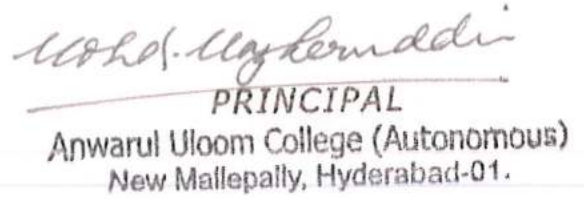 Mohd.
PRINCIPAL
Anwarul Uloom College (Autonomous)
New Mallepally, Hyderabad-01.